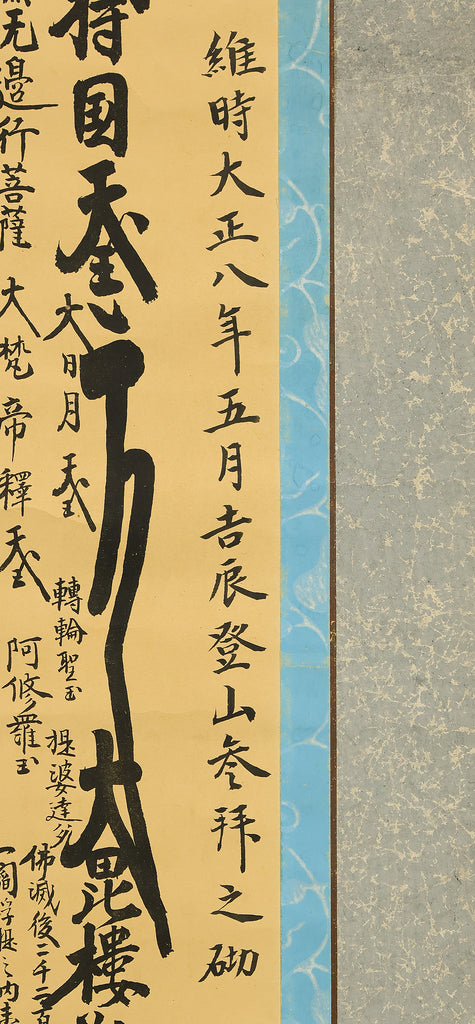 維時大正八年五月吉辰登山参拜之砌
持国天王
大毘樓
大日月天王
轉輪聖王
提婆達多
佛滅後二千二百
无邊行菩薩
大梵帝釋天王
阿修羅王
一閻浮提之内